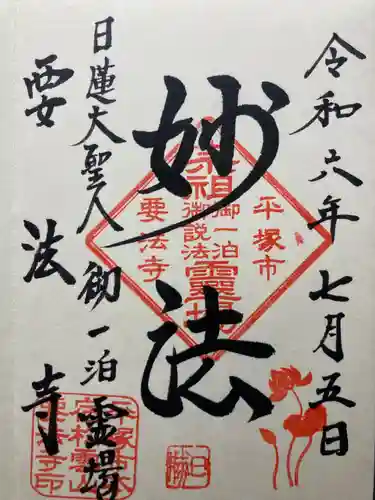 令和六年七月五日
妙法
日蓮大聖人御一泊霊場
要法寺
平塚市
宗祖御一泊
御説法霊場
要法寺